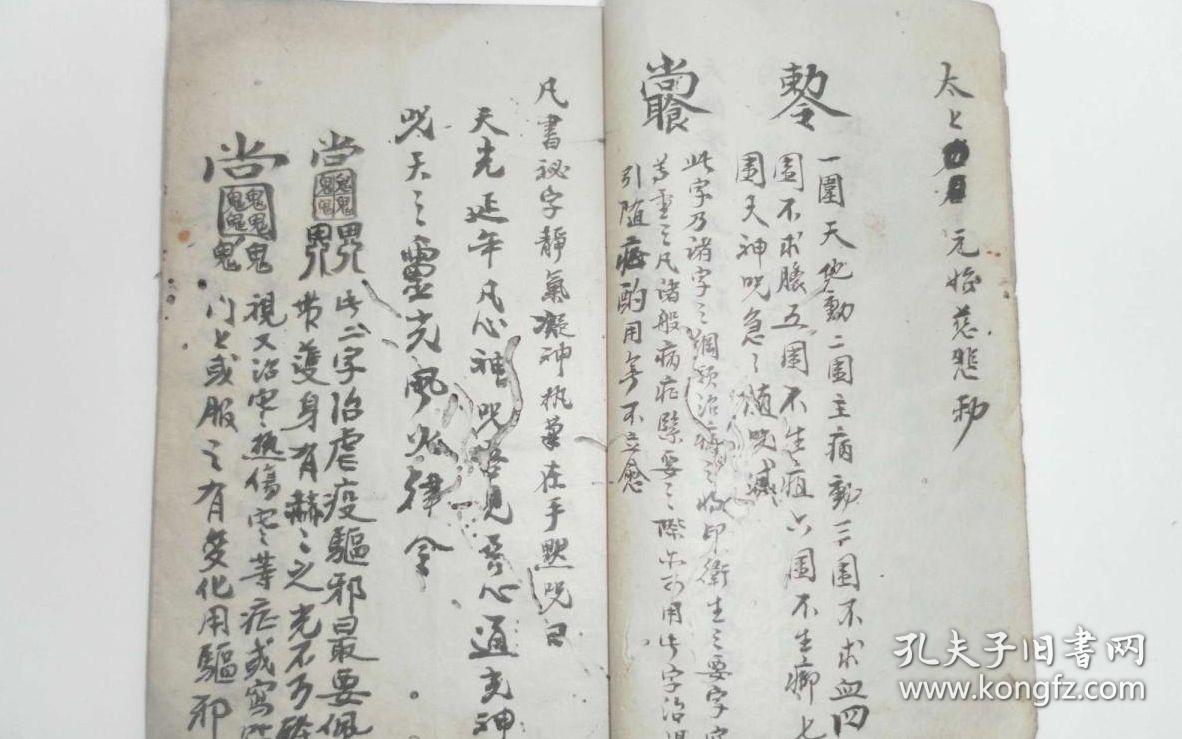 太上 元始慈悲勅
一圍天地動二圍主病動三圍不求血四
圍不求膿五圍不生疽六圍不生癤七
圍天神咒急之隨咒滅
此字乃諸字之綱領治病之將印衛生之要字
之凡諸般病症緊要之際亦可用此字治
引隨症酌用無不立愈
凡書祕字靜氣凝神執筆在手默咒曰
天光延年凡心神咒吾見吾心通玄神
咒天之靈光風火律令
此二字治虐疫驅邪最要佩
帶護身有赫之之光不可
視又治寒熱傷寒等症或寫
门上或服之有變化用驅邪
孔夫子旧书网
www.kongfz.com